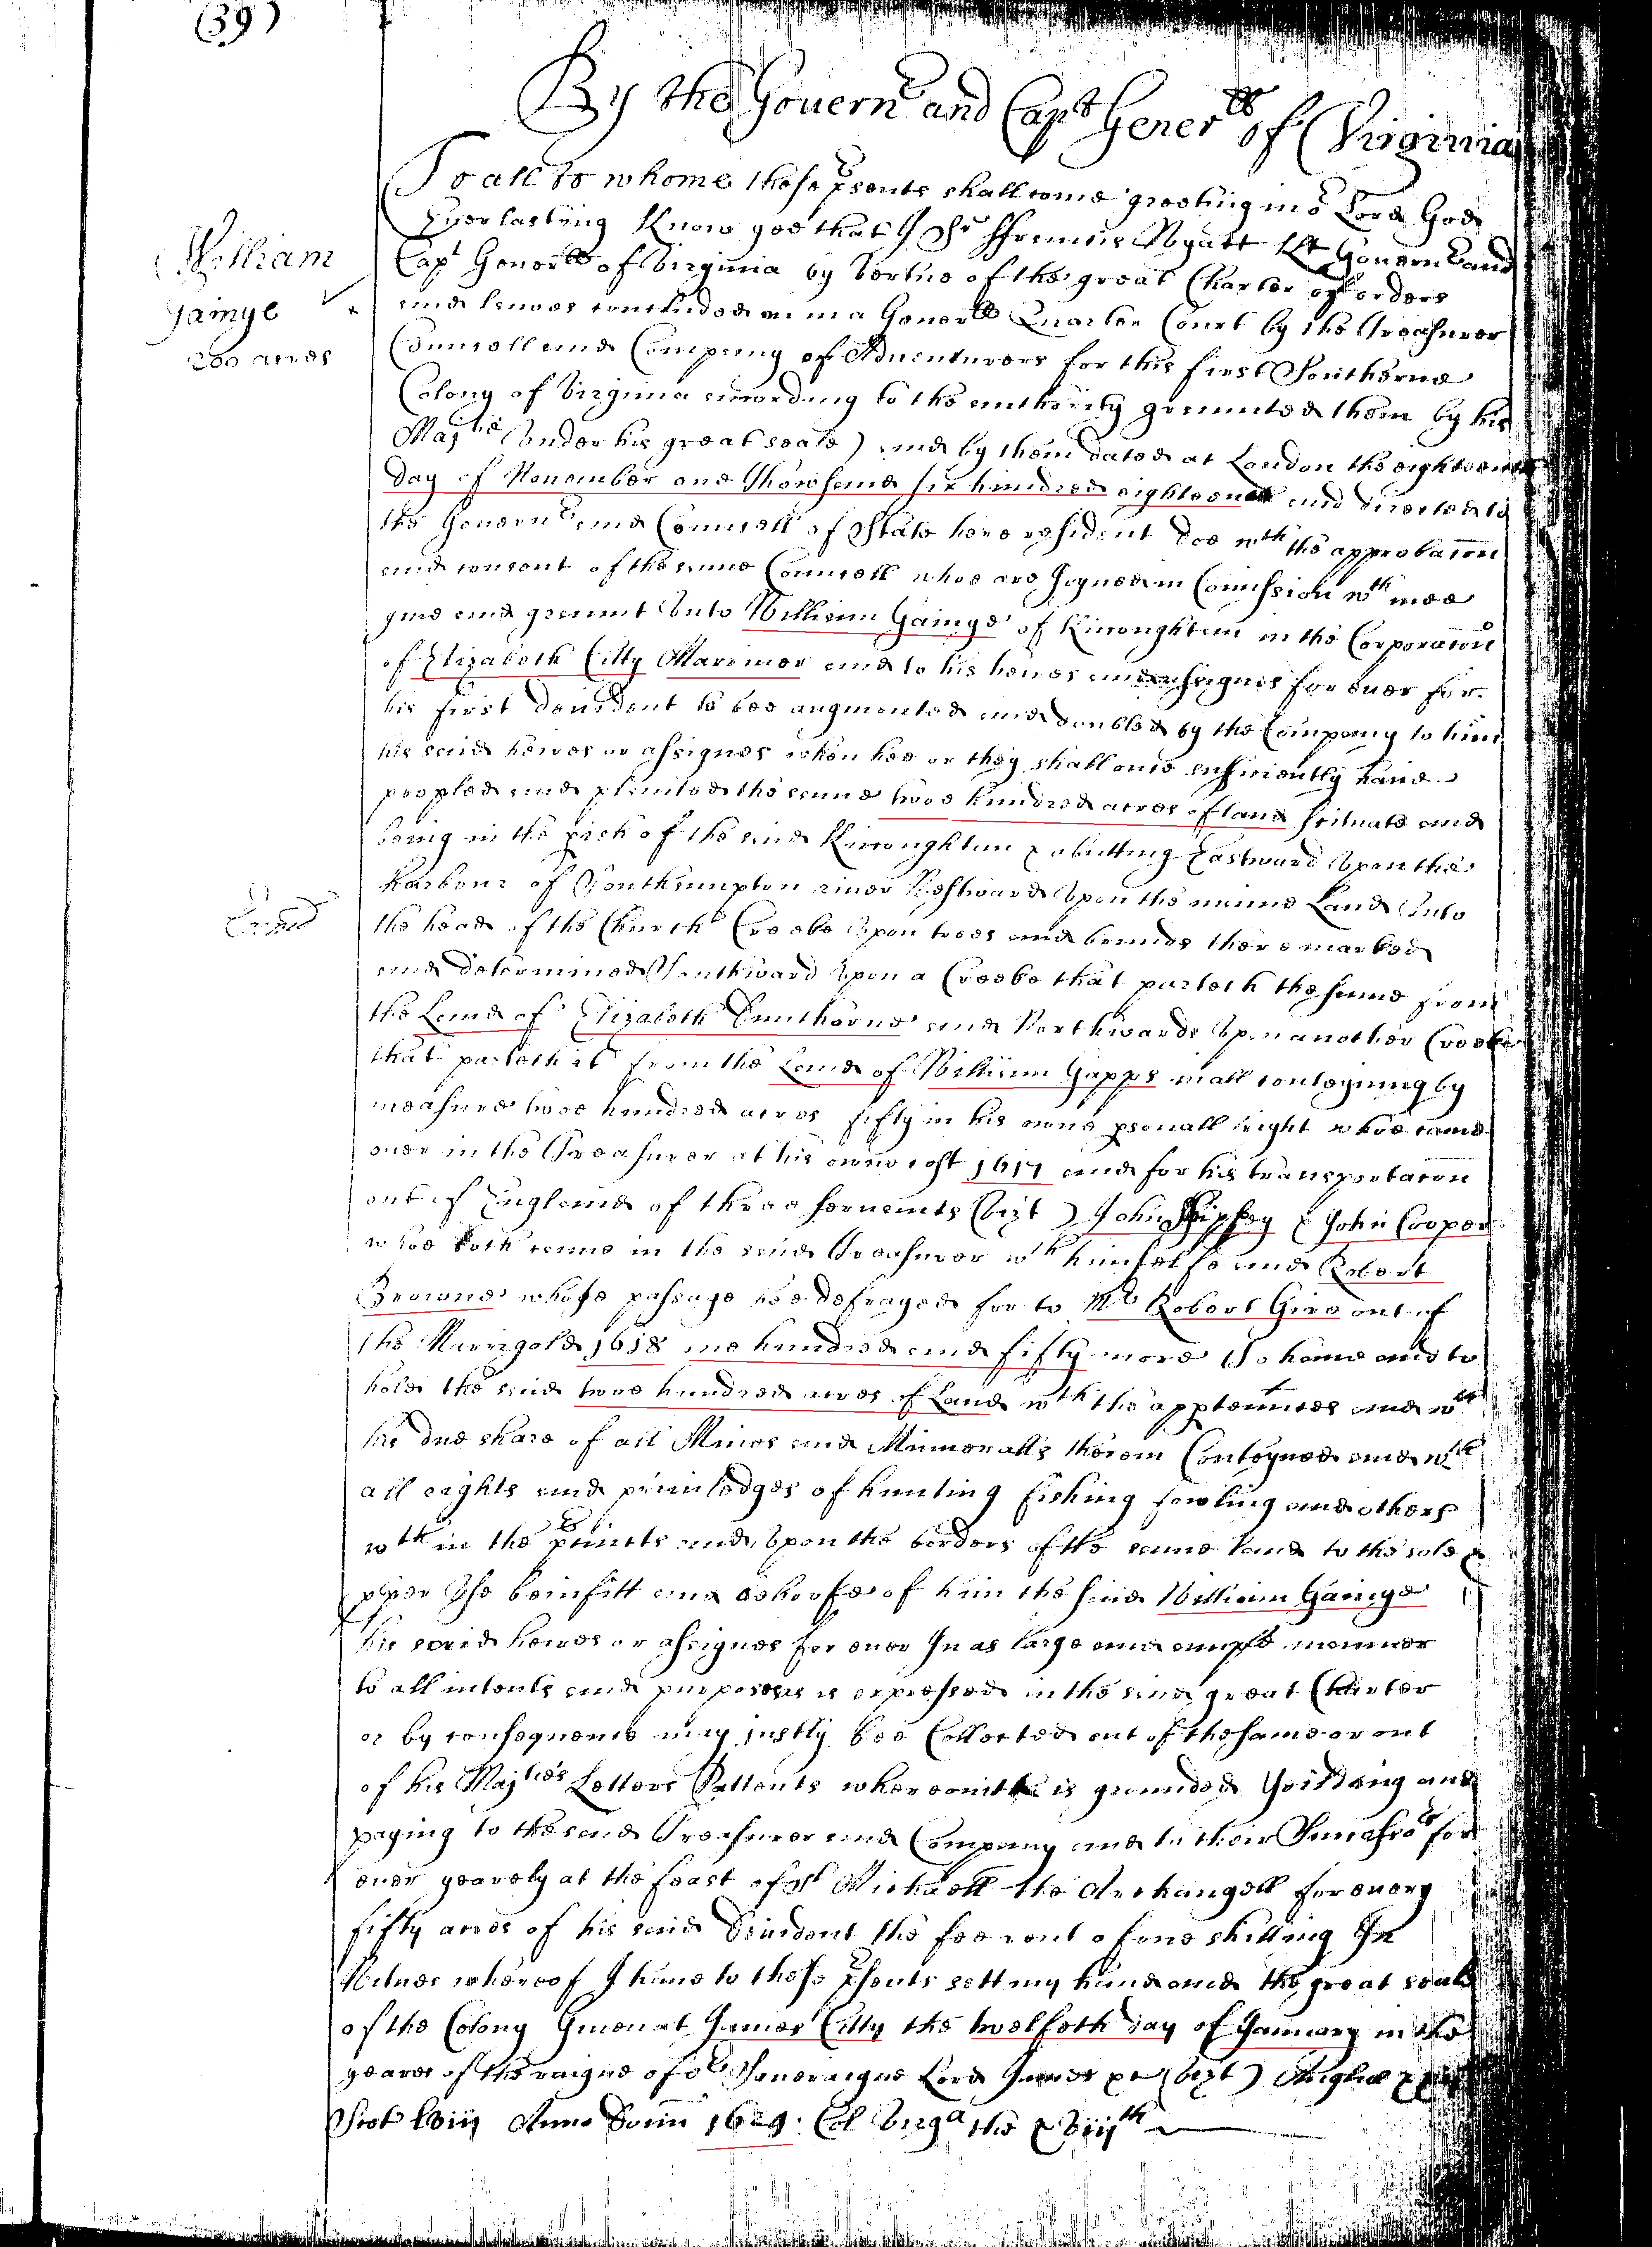 (39)
By the Gouernr and Capt Generll of Virginia
To all to whome these psents shall come greeting in or Lord God
Everlasting Know yee that I Sr ffrancis Wyatt Kt Governr and
Capt Generll of Virginia by Vertue of the great Charter of orders
and lawes concluded on in a Generll Quarter Court by the Treasurer
William
Gainye
200 acres
Counsell and Company of Adventurers for this first Southerne
Colony of Virginia according to the authority graunted them by his
Majtie (under his great seale) and by them dated at London the eighteenth
day of November one Thowsand six hundred eighteene and directed to
the Governr and Counsell of State here resident doe wth the approbacon
and consent of the same Counsell whoe are joyned in Comission wth mee
giue and graunt Unto William Gainye of Kiccoughtan in the Corporacon
of Elizabeth Citty Marriner and to his heires and assignes for ever for
his first devident to bee augmented and doubled by the Company to him
his said heires or assignes when hee or they shall once sufficiently haue
peopled and planted the same twoe hundred acres of land scituate and
being in the pish of the said Kiccoughtan & abutting Eastward Upon the
harbour of Southampton river Westward Upon the maine Land Unto
the head of the Church Creeke Upon trees and bounds there marked
and determined Southward Upon a Creeke that parteth the same from
the Land of Elizabeth Dunthorne and Northwards Upon another Creeke
that parteth it from the Land of William Gapps in all conteyning by
measure twoe hundred acres fifty in his owne psonall right whoe came
over in the Treasurer at his owne cost 1617 and for his transportacon
out of England of three servants (vizt) John & John Cooper
whoe both came in the said Treasurer wth himselfe and Robert
Browne whose passage hee defrayed for to Mr Robert Gire out of
the Marrigold 1618 one hundred and fifty more To haue and to
hold the said twoe hundred acres of Land wth the apptennces and wth
his due share of all Mines and Minneralls therein Conteyned and wth
all rights and priviledges of hunting fishing fowling and others
wth in the pcincts and Upon the borders of the same land to the sole &
pper Use beinfitt and behoofe of him the said William Gainye
his said heires or assignes for ever In as large and ample manner
to all intents and purposes as is expressed in the said great Charter
or by consequence may justly bee Collected out of the same or out
of his Majties Letters Pattents whereon itt is grounded Yeilding and
paying to the said Treasurer and Company and to their Successors for
ever yearely at the feast of St Michaell the Archangell for every
fifty acres of his said Devident the fee rent of one shilling In
Witnes whereof I haue to these psents sett my hand and the great seale
of the Colony Given at James Citty the twelfeth day of January in the
yeares of the raigne of or Soveraigne Lord James (vizt) Angliæ
Scot lviij Anno Domi 1624. Col Virga the xviijth